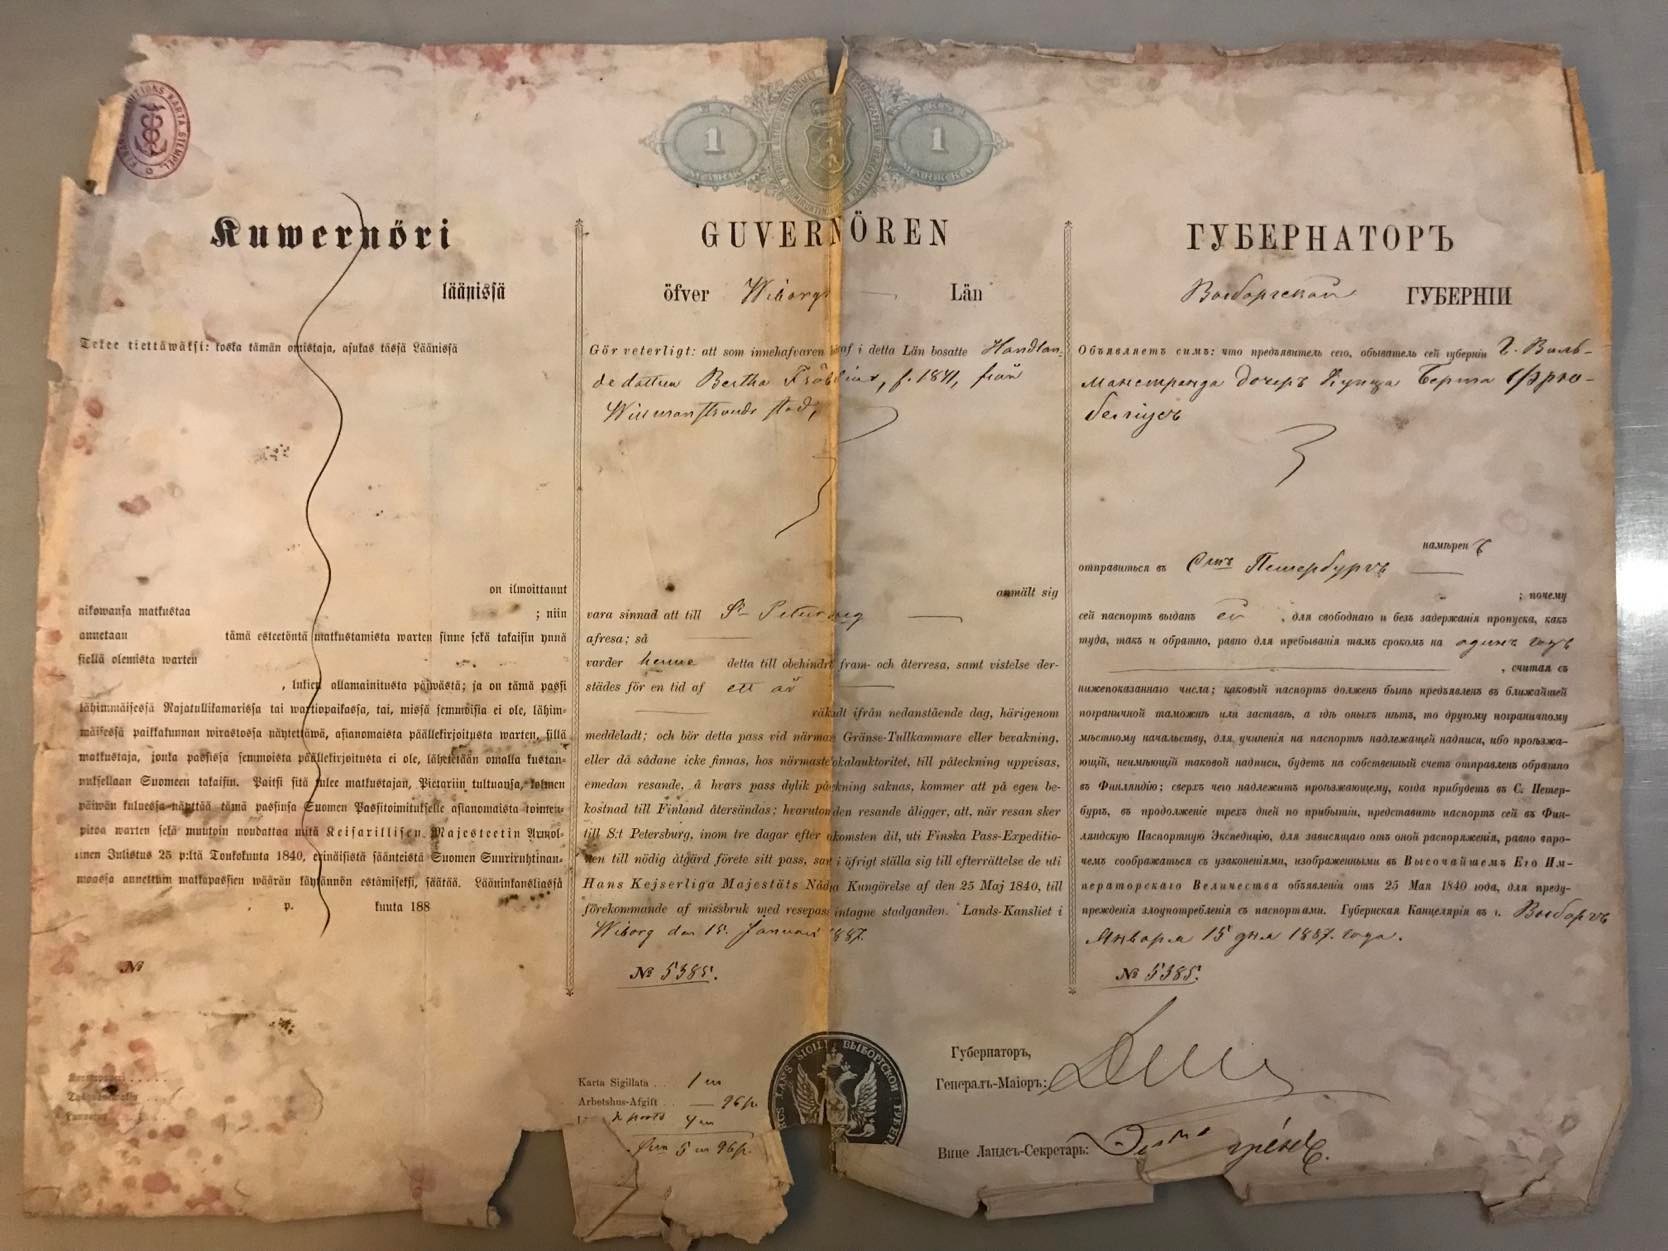 KARTA STEMPEL
1
1
Kuwernöri
läänissä
Tekee tiettäwäksi: koska tämän omistaja, asukas tässä Läänissä
on ilmoittanut
aikowansa matkustaa ; niin
annetaan tämä esteetöntä matkustamista warten sinne sekä takaisin ynnä
siellä olemista warten
, lukien allamainitusta päiwästä; ja on tämä passi
lähimmäisessä Rajatullikamarissa tai wartiopaikassa, tai, missä semmoisia ei ole, lähim-
mäisessä paikkakunnan wirastossa näytettäwä, asianomaista päällekirjoitusta warten, sillä
matkustaja, jonka passissa semmoista päällekirjoitusta ei ole, lähetetään omalla kustan-
nuksellaan Suomeen takaisin. Paitsi sitä tulee matkustajan, Pietariin tultuansa, kolmen
päiwän kuluessa näyttää tämä passinsa Suomen Passitoimitukselle asianomaista toimen-
pitoa warten sekä muutoin noudattaa mitä Keisarillisen Majesteetin Armol-
linen Julistus 25 p:ltä Toukokuuta 1840, erinäisistä säänteistä Suomen Suuriruhtinan-
maassa annettuin matkapassien wäärän käytännön estämiseksi, säätää. Lääninkansliassa
p. kuuta 188
№
GUVERNÖREN
öfver Wiborgs Län
Gör veterligt: att som innehafvaren häraf i detta Län bosatte Handlan-
de dottren Bertha Fröbelius, f. 1841, från
Willmanstrands stad,
anmält sig
vara sinnad att till St Petersburg
afresa; så
varder henne detta till obehindrt fram- och återresa, samt vistelse der-
städes för en tid af ett år
räknadt ifrån nedanstående dag, härigenom
meddeladt; och bör detta pass vid närmaste Gränse-Tullkammare eller bevakning,
eller då sådane icke finnas, hos närmaste lokalauktoritet, till påteckning uppvisas,
emedan resande, å hvars pass dylik påteckning saknas, kommer att på egen be-
kostnad till Finland återsändas; hvarutom den resande åligger, att, när resan sker
till S:t Petersburg, inom tre dagar efter ankomsten dit, uti Finska Pass-Expeditio-
nen till nödig åtgärd förete sitt pass, samt i öfrigt ställa sig till efterrättelse de uti
Hans Kejserliga Majestäts Nådiga Kungörelse af den 25 Maj 1840, till
förekommande af missbruk med resepass intagne stadganden. Lands-Kansliet i
Wiborg den 15 Januari 1887.
№ 5385.
Karta Sigillata . . 1 m
Arbetshus-Afgift . . — 96 p.
4 m
5 m 96 p.
LÄNS SIGILL ВЫБОРГСКОЙ ГУБЕРН
ГУБЕРНАТОРЪ
Выборгской ГУБЕРНІИ
Объявляетъ симъ: что предъявитель сего, обыватель сей губерніи Г. Виль-
манстранда дочерь Купца Берта Фрю-
беліусъ
намѣрена
отправиться въ Сktъ Петербургъ
; почему
сей паспортъ выданъ ей , для свободнаго и безъ задержанія пропуска, какъ
туда, такъ и обратно, равно для пребыванія тамъ срокомъ на одинъ годъ
, считая съ
нижепоказаннаго числа; каковый паспортъ долженъ быть предъявленъ въ ближайшей
пограничной таможнѣ или заставѣ, а гдѣ оныхъ нѣтъ, то другому пограничному
мѣстному начальству, для учиненія на паспортѣ надлежащей надписи, ибо проѣзжа-
ющій, неимѣющій таковой надписи, будетъ на собственный счетъ отправленъ обратно
въ Финляндію; сверхъ чего надлежитъ проѣзжающему, когда прибудетъ въ С. Петер-
бургъ, въ продолженіе трехъ дней по прибытіи, представить паспортъ сей въ Фин-
ляндскую Паспортную Экспедицію, для зависящаго отъ оной распоряженія, равно впро-
чемъ соображаться съ узаконеніями, изображенными въ Высочайшемъ Его Им-
ператорскаго Величества объявленіи отъ 25 Мая 1840 года, для преду-
прежденія злоупотребленія съ паспортами. Губернская Канцелярія въ г. Выборгъ
Января 15 дня 1887. года.
№ 5385.
Губернаторъ,
Генералъ-Маіоръ:
Вице Ландсъ-Секретарь: